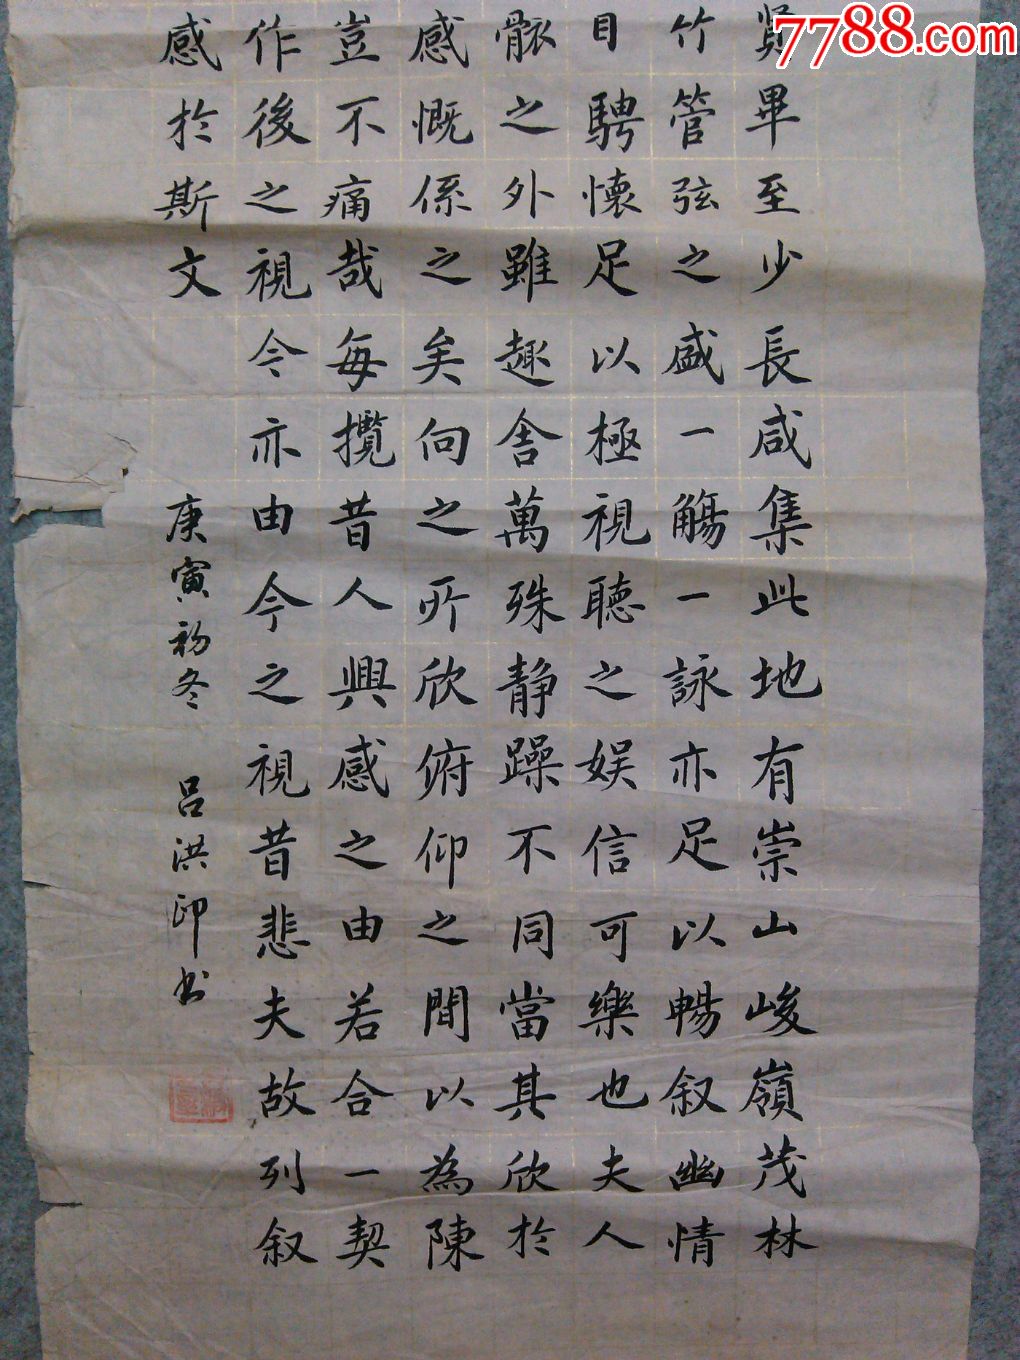 7788.com
賢畢至少長咸集此地有崇山峻嶺茂林
竹管弦之盛一觴一詠亦足以暢叙幽情
目騁懷足以極視聽之娱信可樂也夫人
骸之外雖趣舍萬殊静躁不同當其欣於
感慨係之矣向之所欣俯仰之間以為陳
豈不痛哉每攬昔人興感之由若合一契
作後之視今亦由今之視昔悲夫故列叙
感於斯文
庚寅初冬 吕洪印书